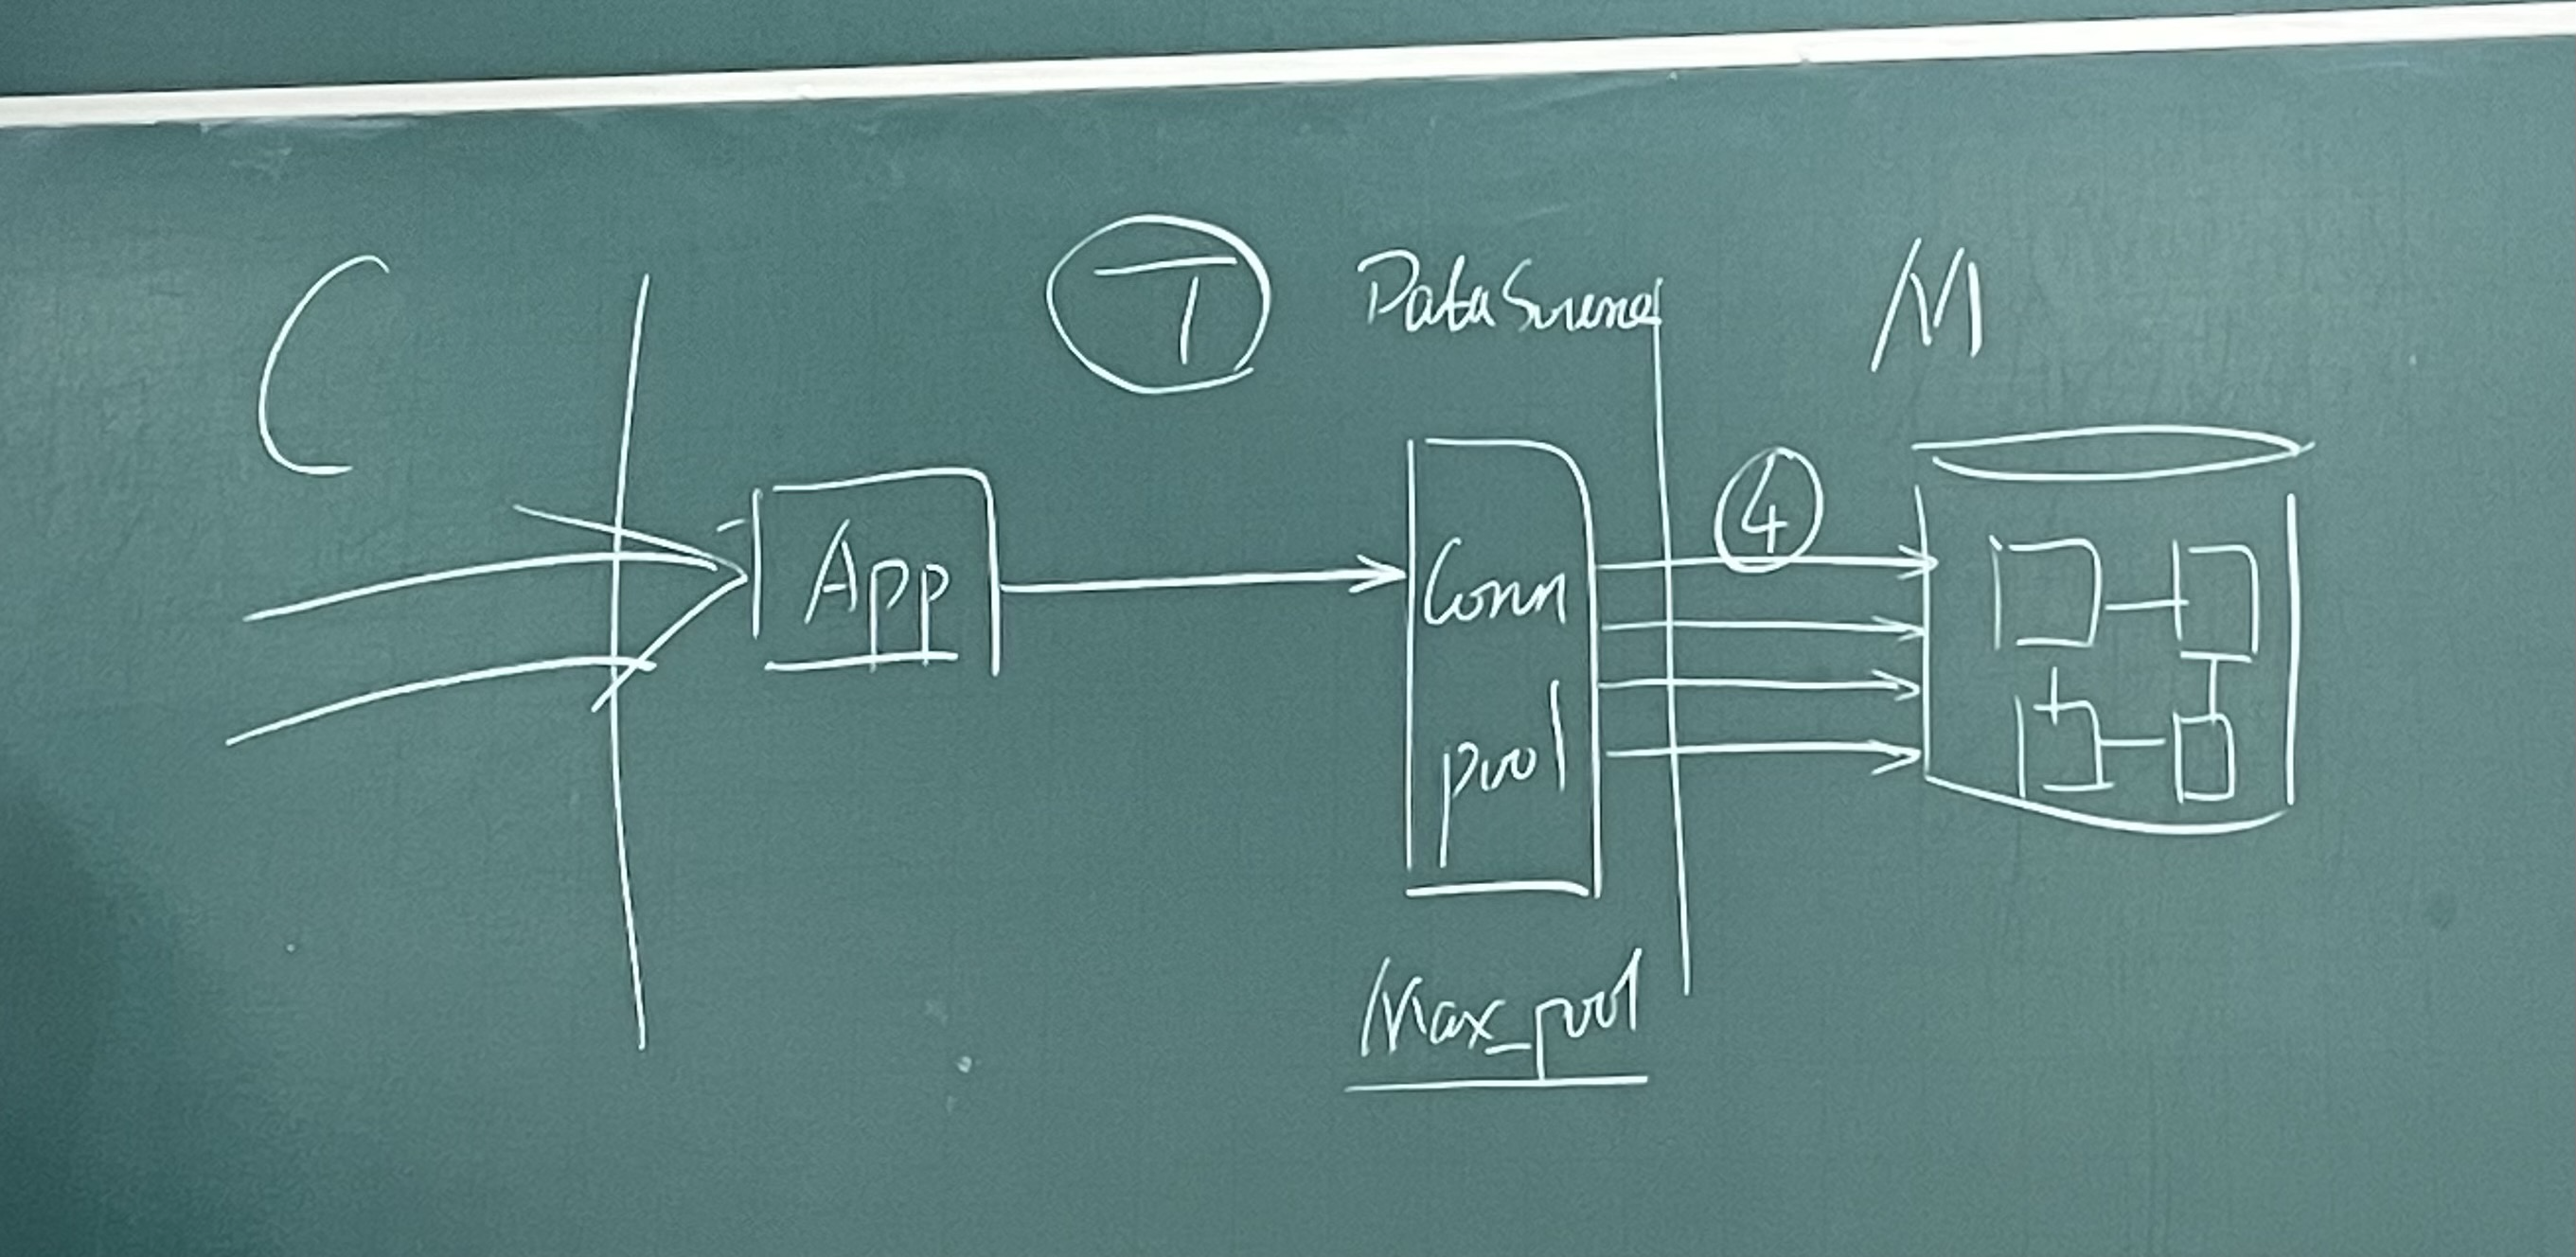 C
T
DataSource
M
App
Conn
pool
4
Max_pool